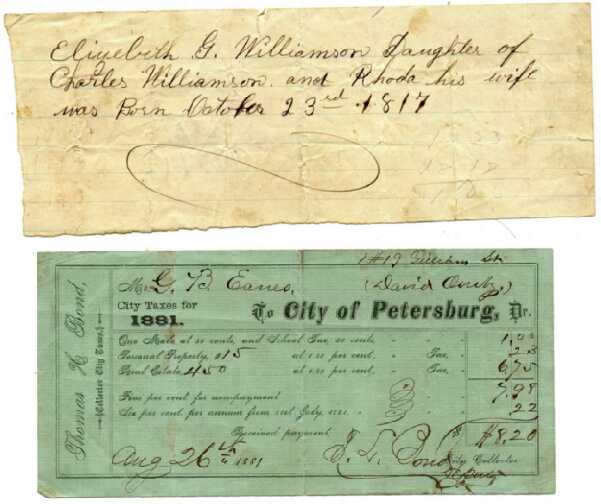 Eliyebeth G. Williamson Daughter of
Charles Williamson and Rhoda his wife
was Born October 23rd 1817
Mr G. B Eanes, (David
City Taxes for
1881.
To City of Petersburg, Dr.
Thomas H. Bond,
(Collector City Taxes,)
One Male at 50 cents, and School Tax, 50 cents, 1,00
Personal Property, 215 at 1.50 per cent. Tax,
Real Estate, 450 at 1.50 per cent. Tax, 6,75
Five per cent for non-payment 7,98
Six per cent. per annum from 1st July, 1881. 22
Received payment, $ 8.20
Aug 26th 1881
City Collector